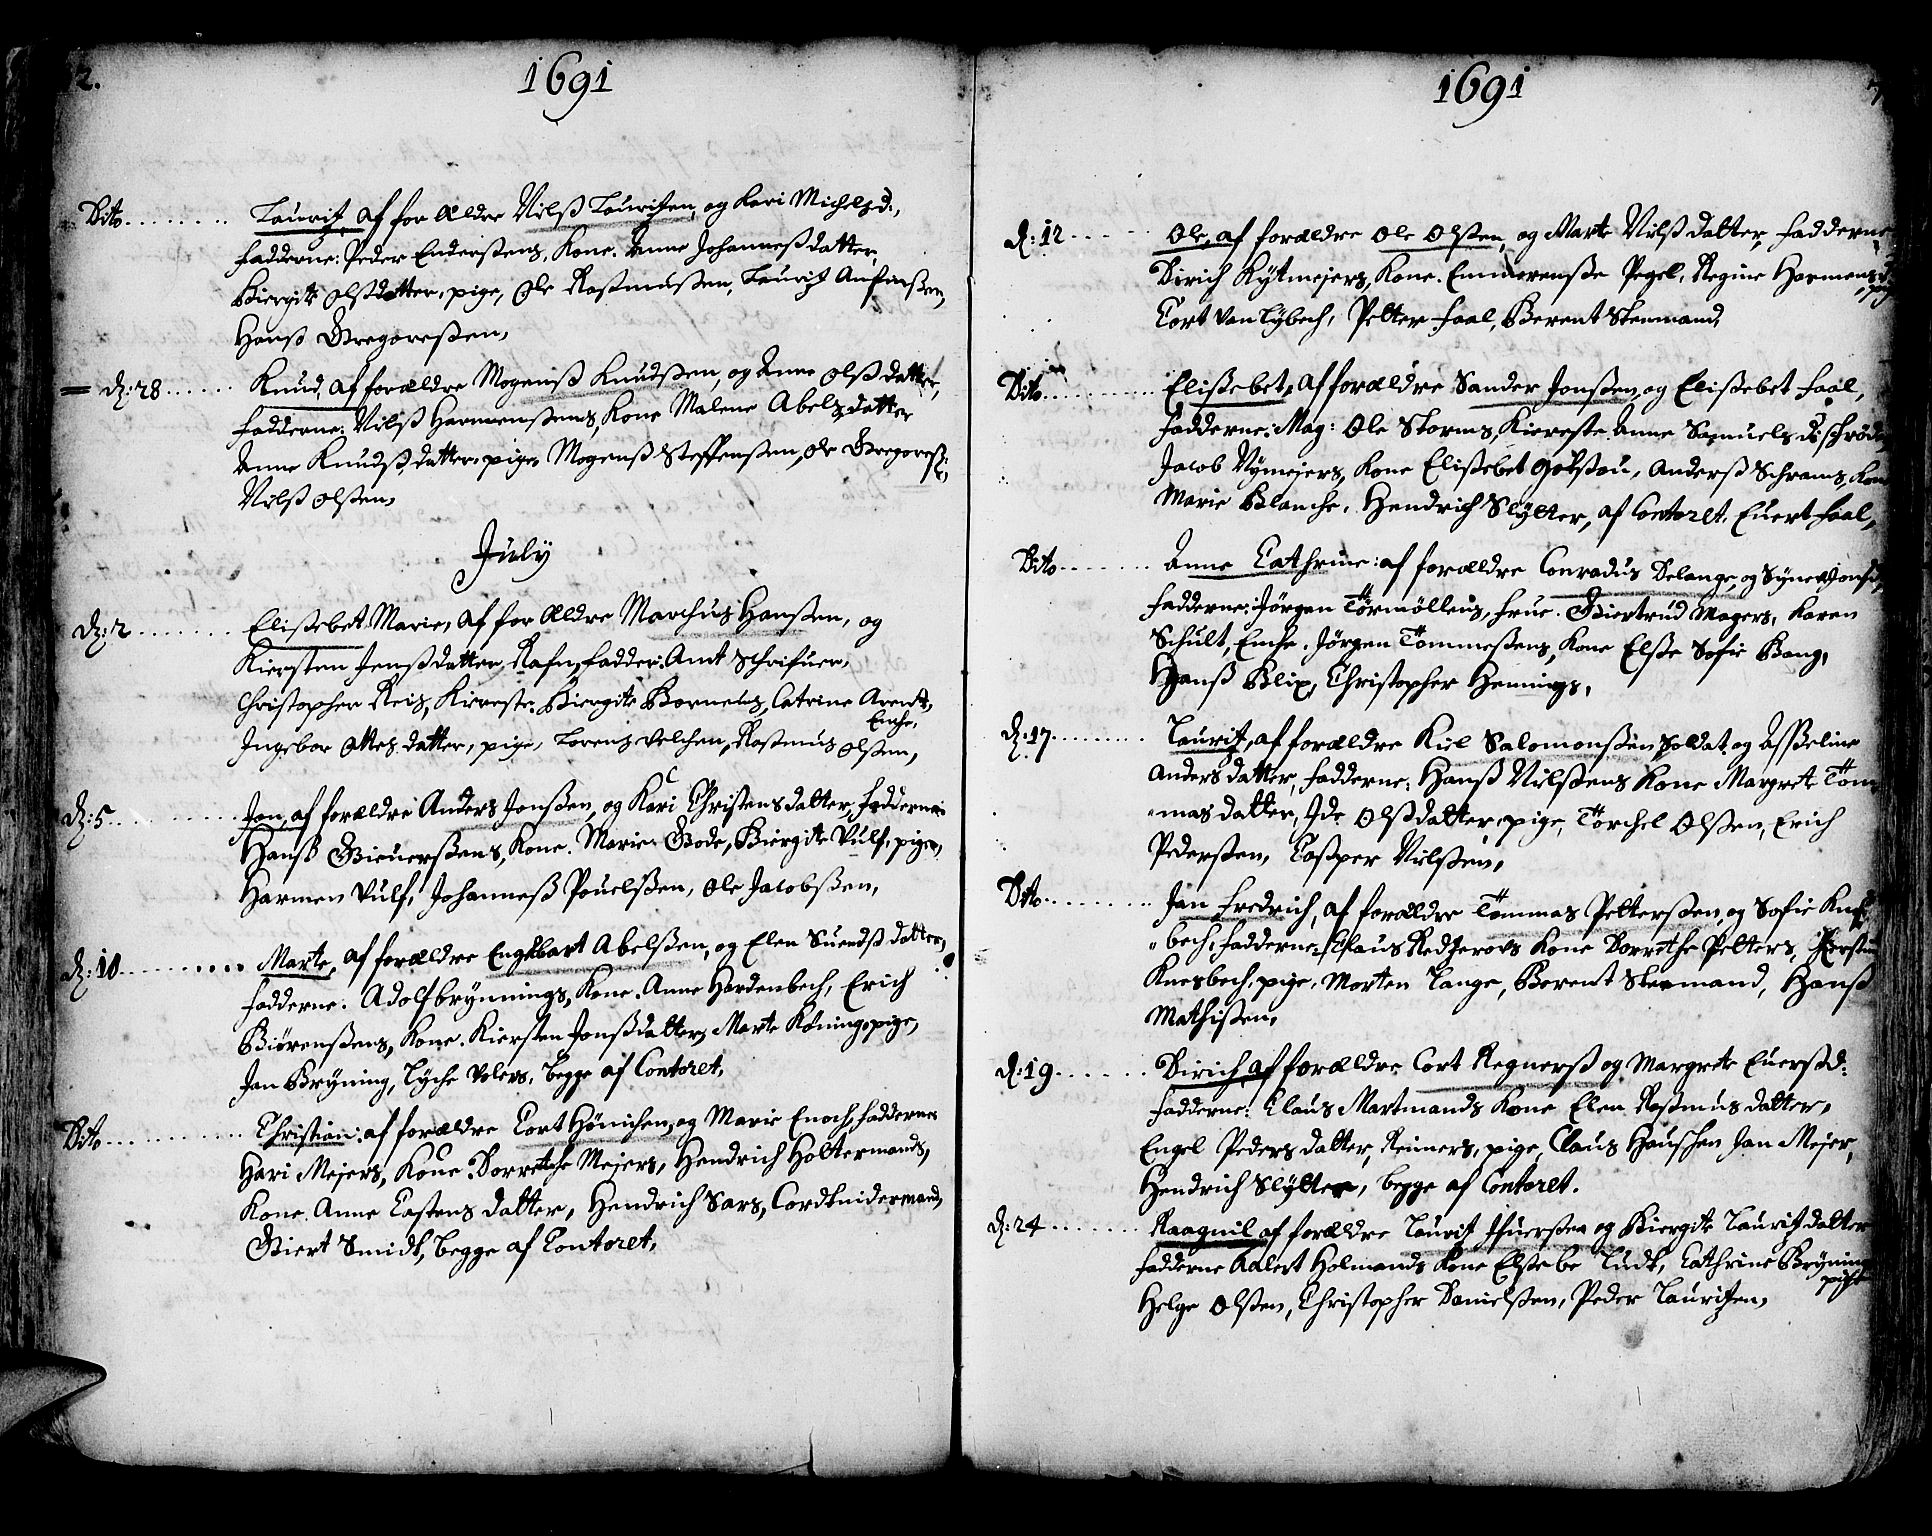 2.
1691
Dito......... Lauritz, af forældre Nilß Lauritzen, og Kari Michelsd:,
fadderne: Peder Enderßens, Kone. Anne Johanneßdatter,
Biergite Olßdatter, pige, Ole Raßmußen, Lauritz Anfinßen,
Hanß Gregorießen,
d: 28...... Knud, af forældre Mogenß Knudßen, og Anne Olßdatter,
fadderne: Nilß Harmensens, Kone Malene Abelsdatter
Anne Knudßdatter, pige, Mogenß Steffenßen, Ole Gregorieß:,
Nilß Olßen,
July
d: 2....... Elißebet Marie, af forældre Marchus Hanßen, og
Kiersten Jenßdatter Rafn, fadder: Amt Schrifuer,
Christopher Reis, Kiereste. Biergite Bornemans, Catrine Arent,
Enche,
Ingebor Ottesdatter, pige, Lorens Velchen, Raßmus Olßen,
d: 5......... Jon, af forældre Anders Jonßen, og Kari Christensdatter, fadderne:
Hanß Gieuerßens, Kone. Marie Bode, Biergite Vulf, pige,
Harmen Vulf, Johanneß Pouelßen, Ole Jacobßen,
d: 10......... Marte, af forældre Engelbart Abelßen, og Elen Suendßdatter,
fadderne. Adolf brynnings, Kone. Anne Hardenbech, Erich
Biørenßens, Kone. Kiersten Jonßdatter, Marte Køning, pige,
Jan Bryning, Lyche Volers, begge af Contoret,
Dito......... Christian, af forældre Cort Hønichen, og Marie Enoch, fadderne
Hari Mejers, Kone. Dorrethe Mejers, Hendrich Holtermands,
Kone. Anne Castensdatter, Hendrich Sars, Cordt nidermand,
Giert Smidt, begge af Contoret,
1691
d: 12...... Ole, af forældre Ole Olßen, og Marte Nilßdatter, fadderne
Dirich Kytmejers, Kone. Emmerenße Pegel, Regine Harmensd:
pige
Cort van Lybech, Petter Faal, Berent Stenmand,
Dito......... Elißebet, af forældre Sander Jonßen, og Elißebet Faal,
fadderne: Mag: Ole Storms, Kiereste Anne Samuelsd: schrøder
Jacob Nymejers, Kone Elißebet, Anderß Schrams, Kone
Marie Blanche, Hendrich Slytter, af Contoret. Euert Faal,
Dito....... Anne Cathrine: af forældre Conradus Delange, og Jonsd:,
fadderne: Jørgen Tormøllens, frue. Giertrud Magers, Karen
Schult, Enche. Jørgen Tommeßens, Kone Elße Sofie Bang,
Hanß Blix, Christopher Hennings,
d: 17......... Lauritz, af forældre Kiel Salomonßen Soldat, og Asseline
Andersdatter, fadderne: Hanß Nilßens Kone Margrete Tom
masdatter, Ide Olßdatter, pige, Torchel Olßen, Erich
Pederßen, Casper Nilßen,
Dito......... Jan Fredrich, af forældre Tommas Petterßen, og Sofie Knes
bech, fadderne: Claus Redjerods Kone Dorrethe Petters,
Knesbech, pige, Morten Lange, Berent Stenmand, Hanß
Mathißen,
d: 19...... Dirich, af forældre Cort Regnerß og Margrete Euerßd:
fadderne: Claus Martmands Kone Elen Raßmusdatter,
Engel Pedersdatter, Reiners, pige, Claus Hauschen Jan Mejer,
Hendrich Slytter, begge af Contoret.
d: 24...... Raagnil, af forældre Lauritz Ifuerßen og Biergite Lauritzdatter
fadderne Halert Holmands Kone Elßebe Ludt, Cathrine Bryning
pige
Helge Olßen, Christopher Danielßen, Peder Lauritzen,